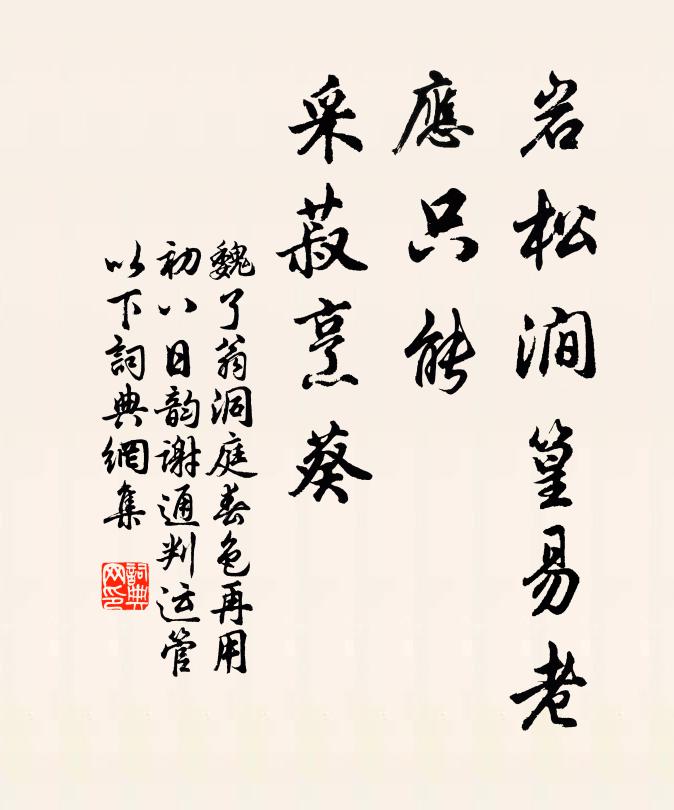 岩松涧篁易老
應只能
采菽烹葵
魏了翁洞庭春色再用
初八日韵謝通判运管
以下詞典網集
詞典网印